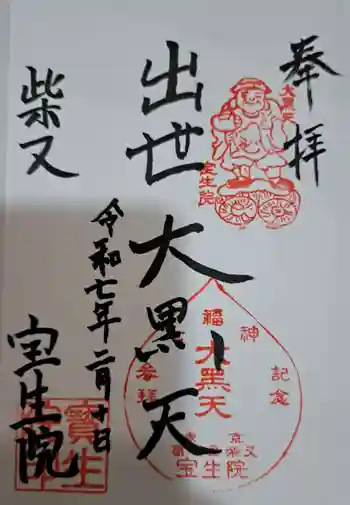 奉拝
大黒天
宝生院
出世大黒天
福神
大黑天
記念
参拝
東京
柴又
宝生院
令和七年二月十日
柴又
宝生院
寶生